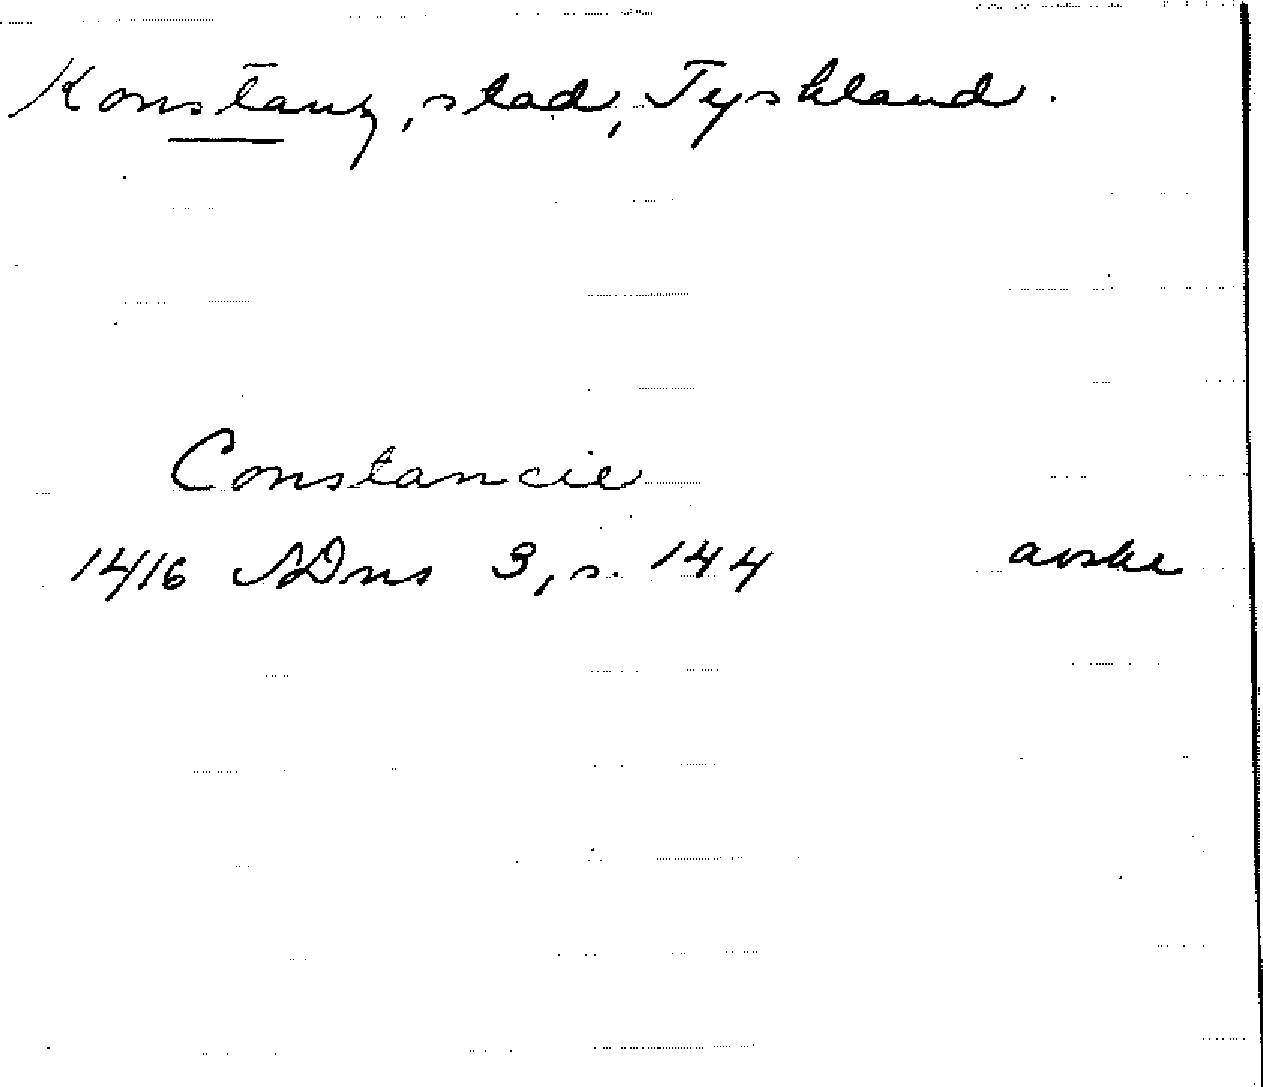 Konstanz, stad, Tyskland.
Constancie
1416 SDns 3, s. 144 avskr